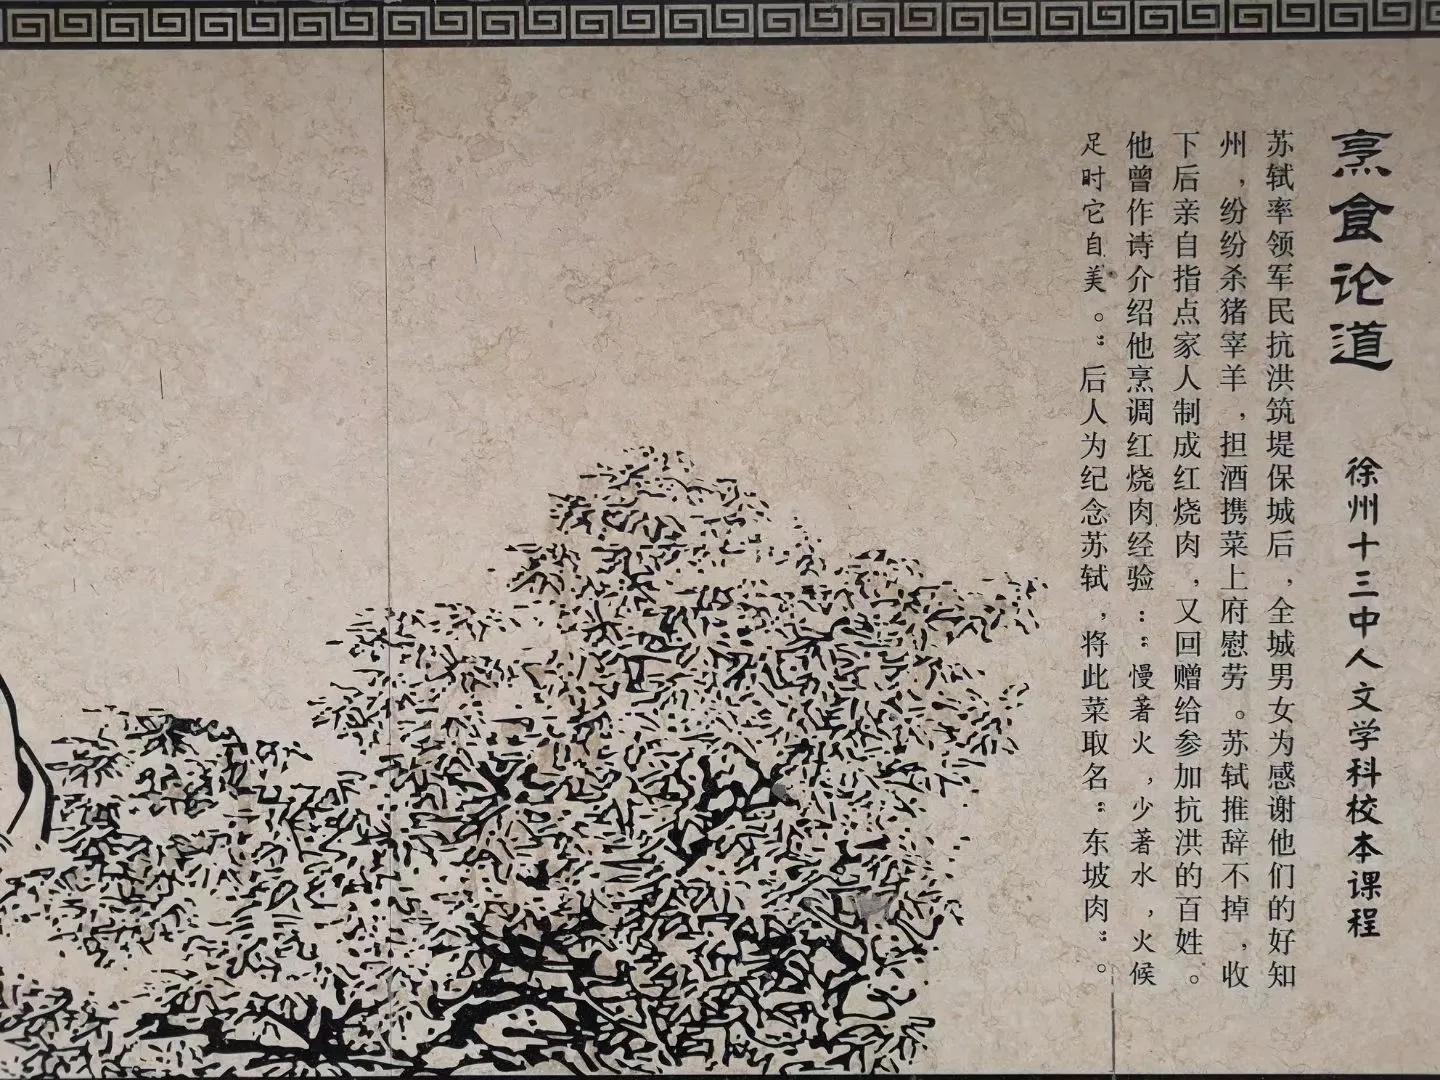 烹食论道 徐州十三中人文学科校本课程
苏轼率领军民抗洪筑堤保城后，全城男女为感谢他们的好知
州，纷纷杀猪宰羊，担酒携菜上府慰劳。苏轼推辞不掉，收
下后亲自指点家人制成红烧肉，又回赠给参加抗洪的百姓。
他曾作诗介绍他烹调红烧肉经验：“慢著火，少著水，火候
足时它自美。”后人为纪念苏轼，将此菜取名“东坡肉”。